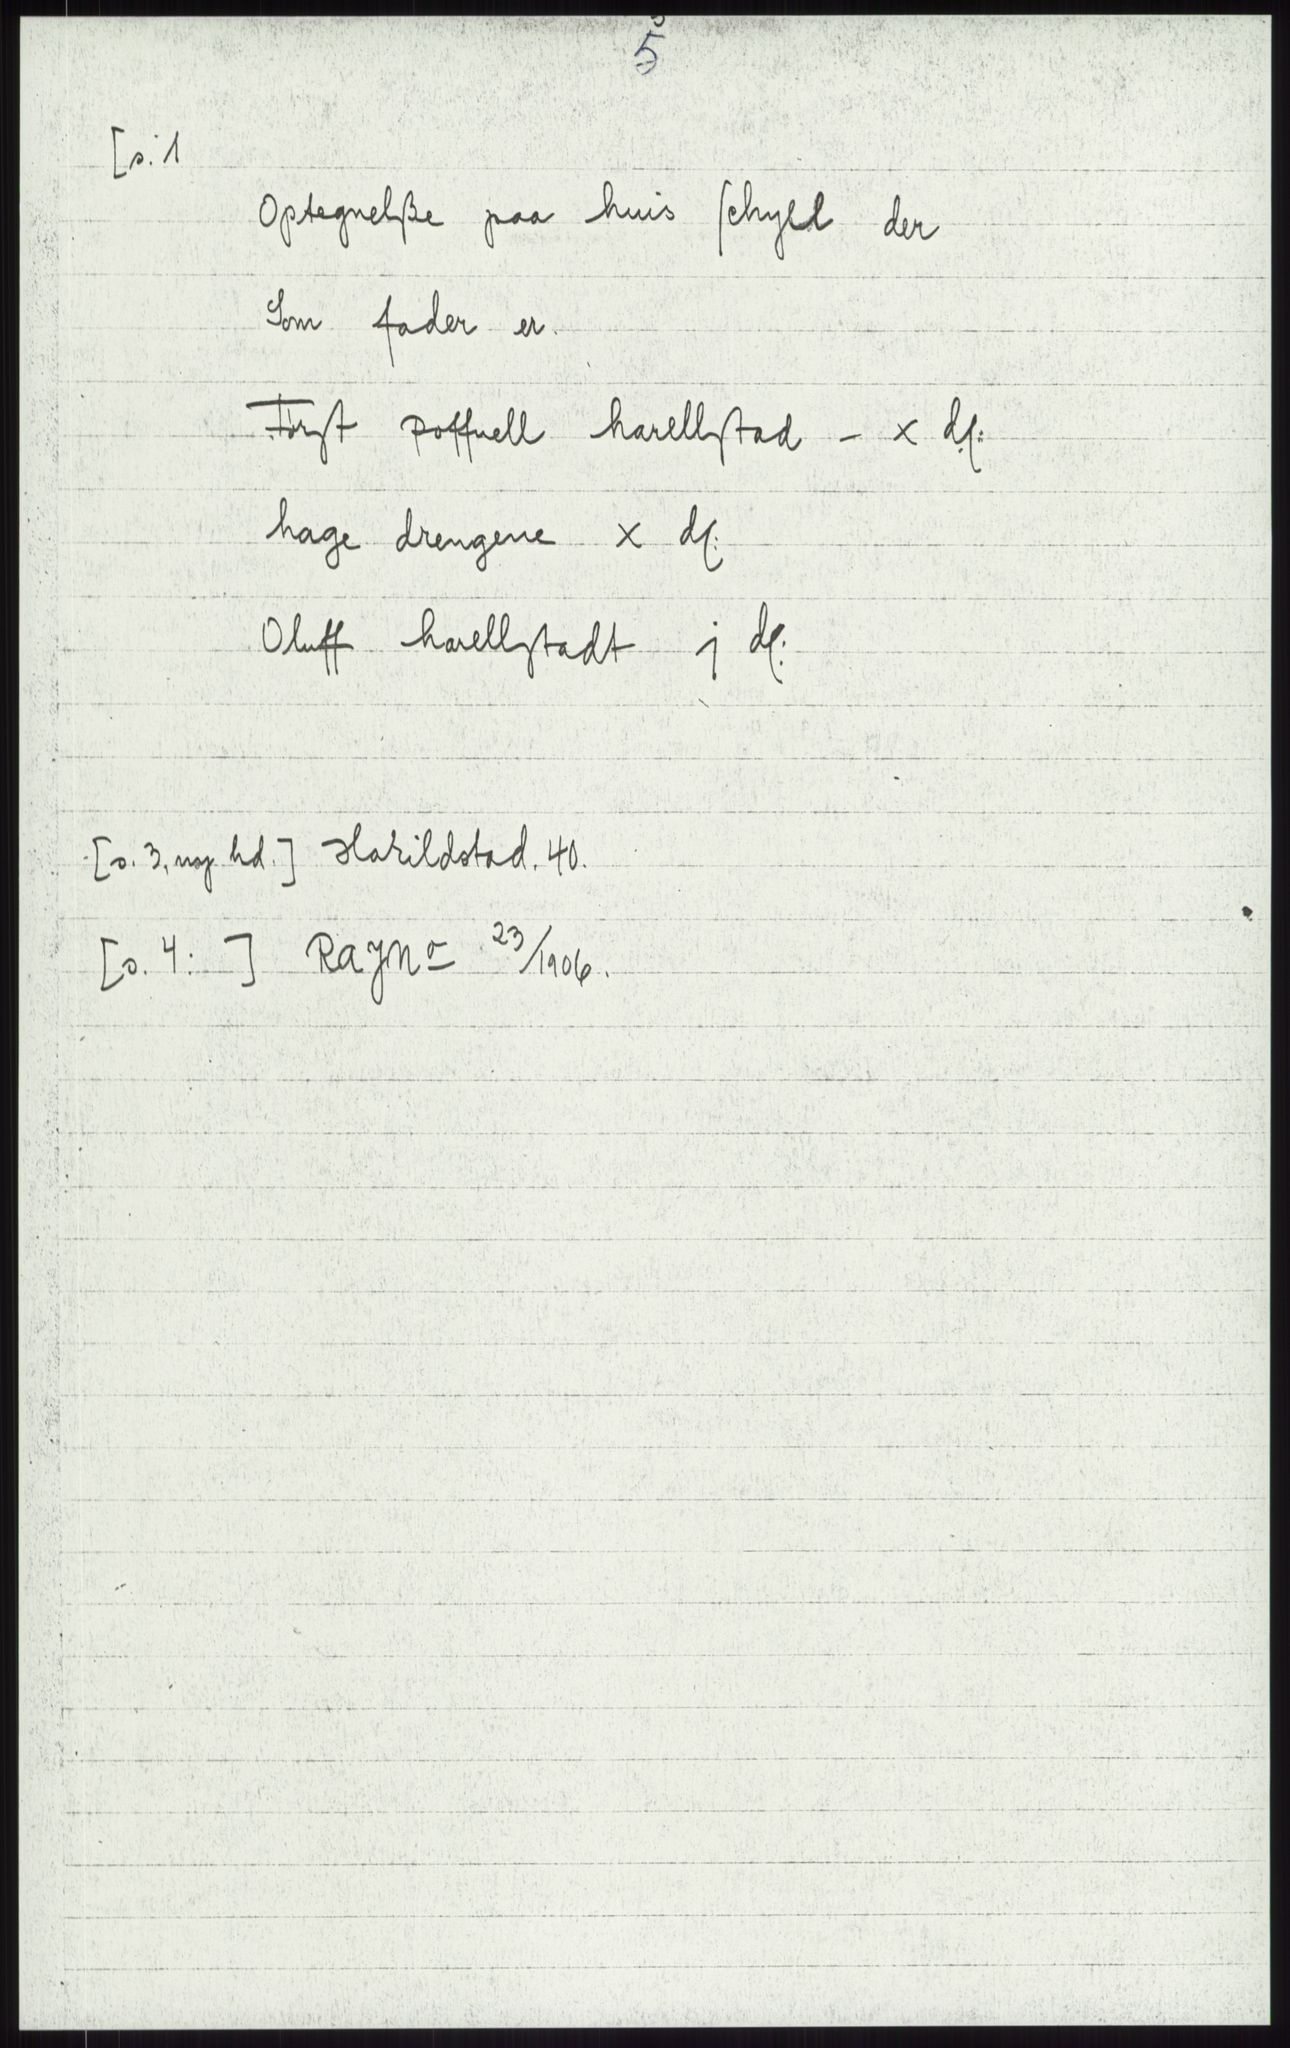 5
[s. 1
Optegnelße paa huis schyld der
Som fader er.
Först poffuell harellstad - x dl:
hage drengene x dl:
Oluff harellstadt j dl:
[s. 3, nog. hd.] Harildstad. 40.
[s. 4: ] RAJNo 23/1906.